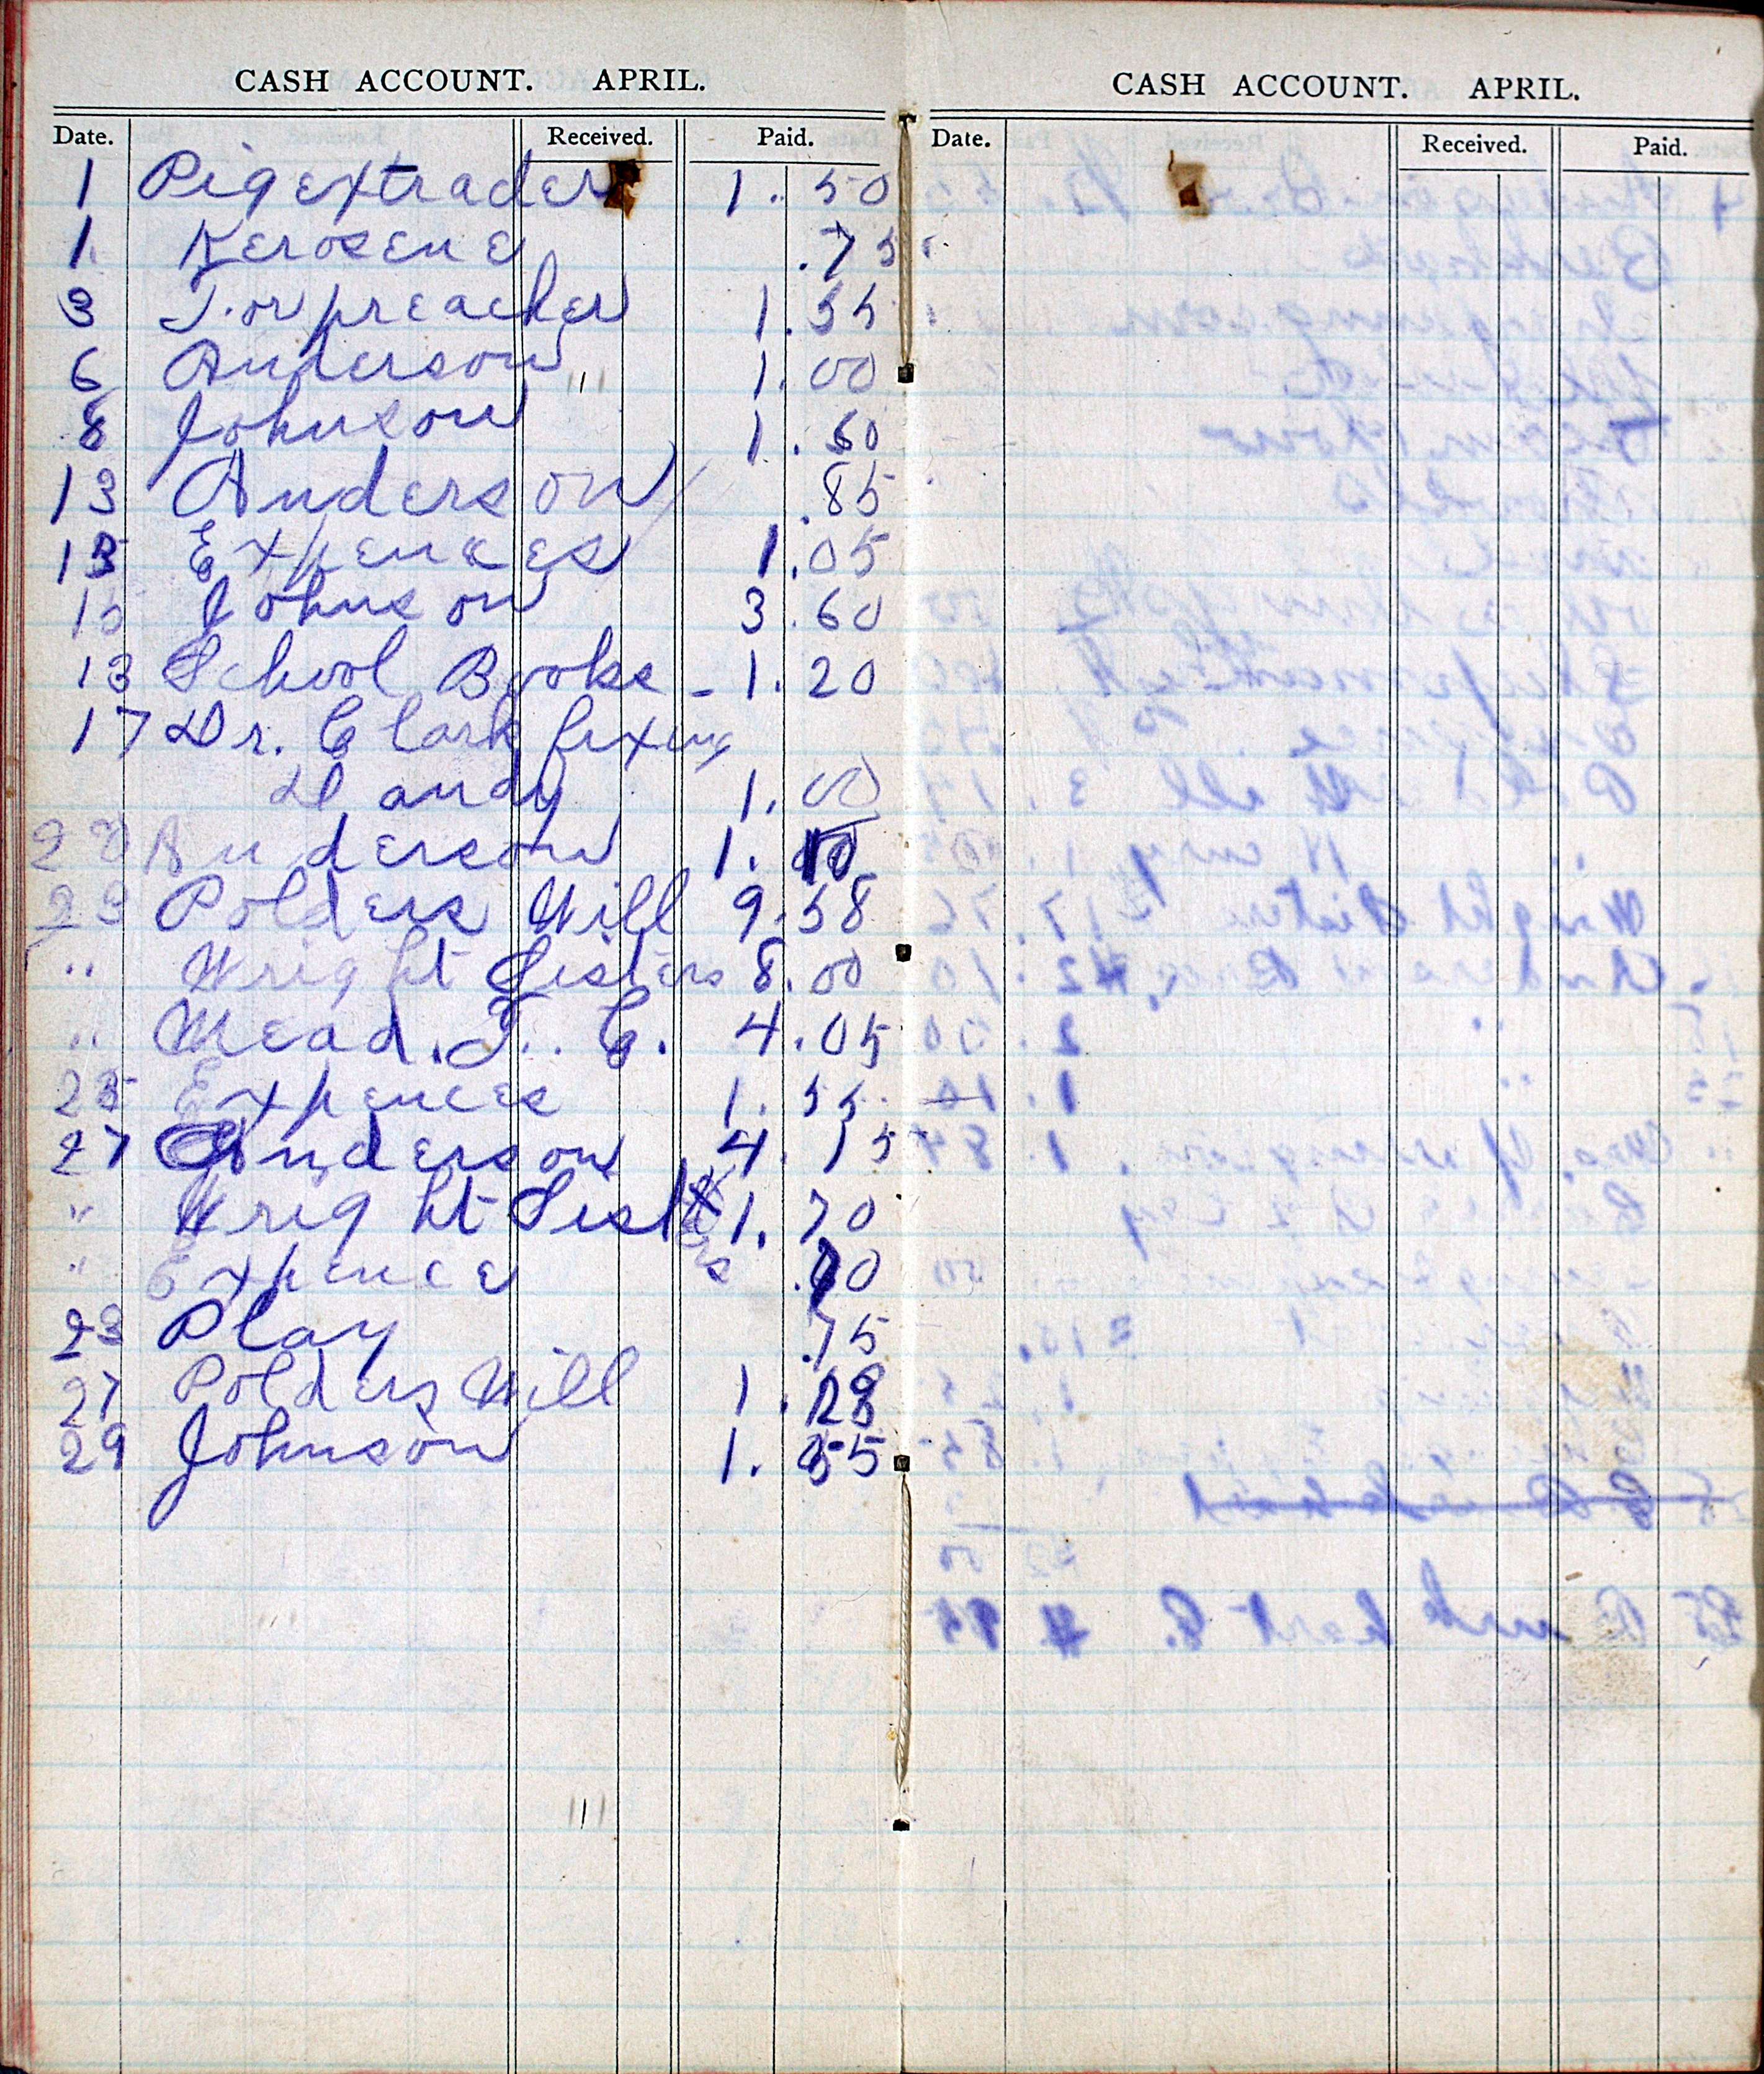 CASH ACCOUNT. APRIL.
Date. Received. Paid.
1 Pig extrader 1. 50
1. Kerosene .75
3 For preacher 1.55
6 Anderson 1.00
8 Johnson 1.60
13 Anderson .85
13 Expences 1.05
15 Johnson 3.60
13 School Books - 1.20
17 Dr. Clark fixing
Dandy 1.00
Anderson 1. 10
23 Polders Will 9.58
" Wright Sisters 8.00
" Mead. F. C. 4.05
25 Expences 1.55
27 Anderson 4.15
" Wright Sisters 1.70
" Expence
23 Play .75
27 Polders Will 1.28
29 Johnson 1.55
CASH ACCOUNT. APRIL.
Date. Received. Paid.